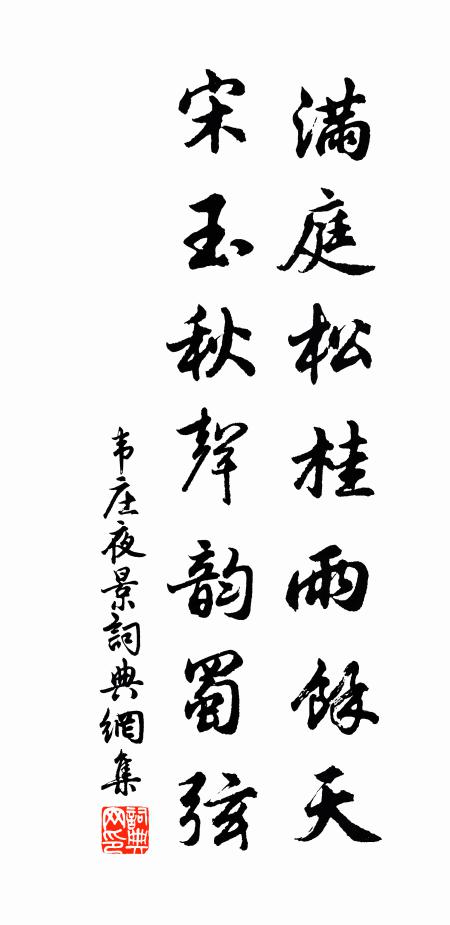 满庭松桂雨餘天
宋玉秋聲韵蜀弦
韦庄夜景詞典網集
詞典网印